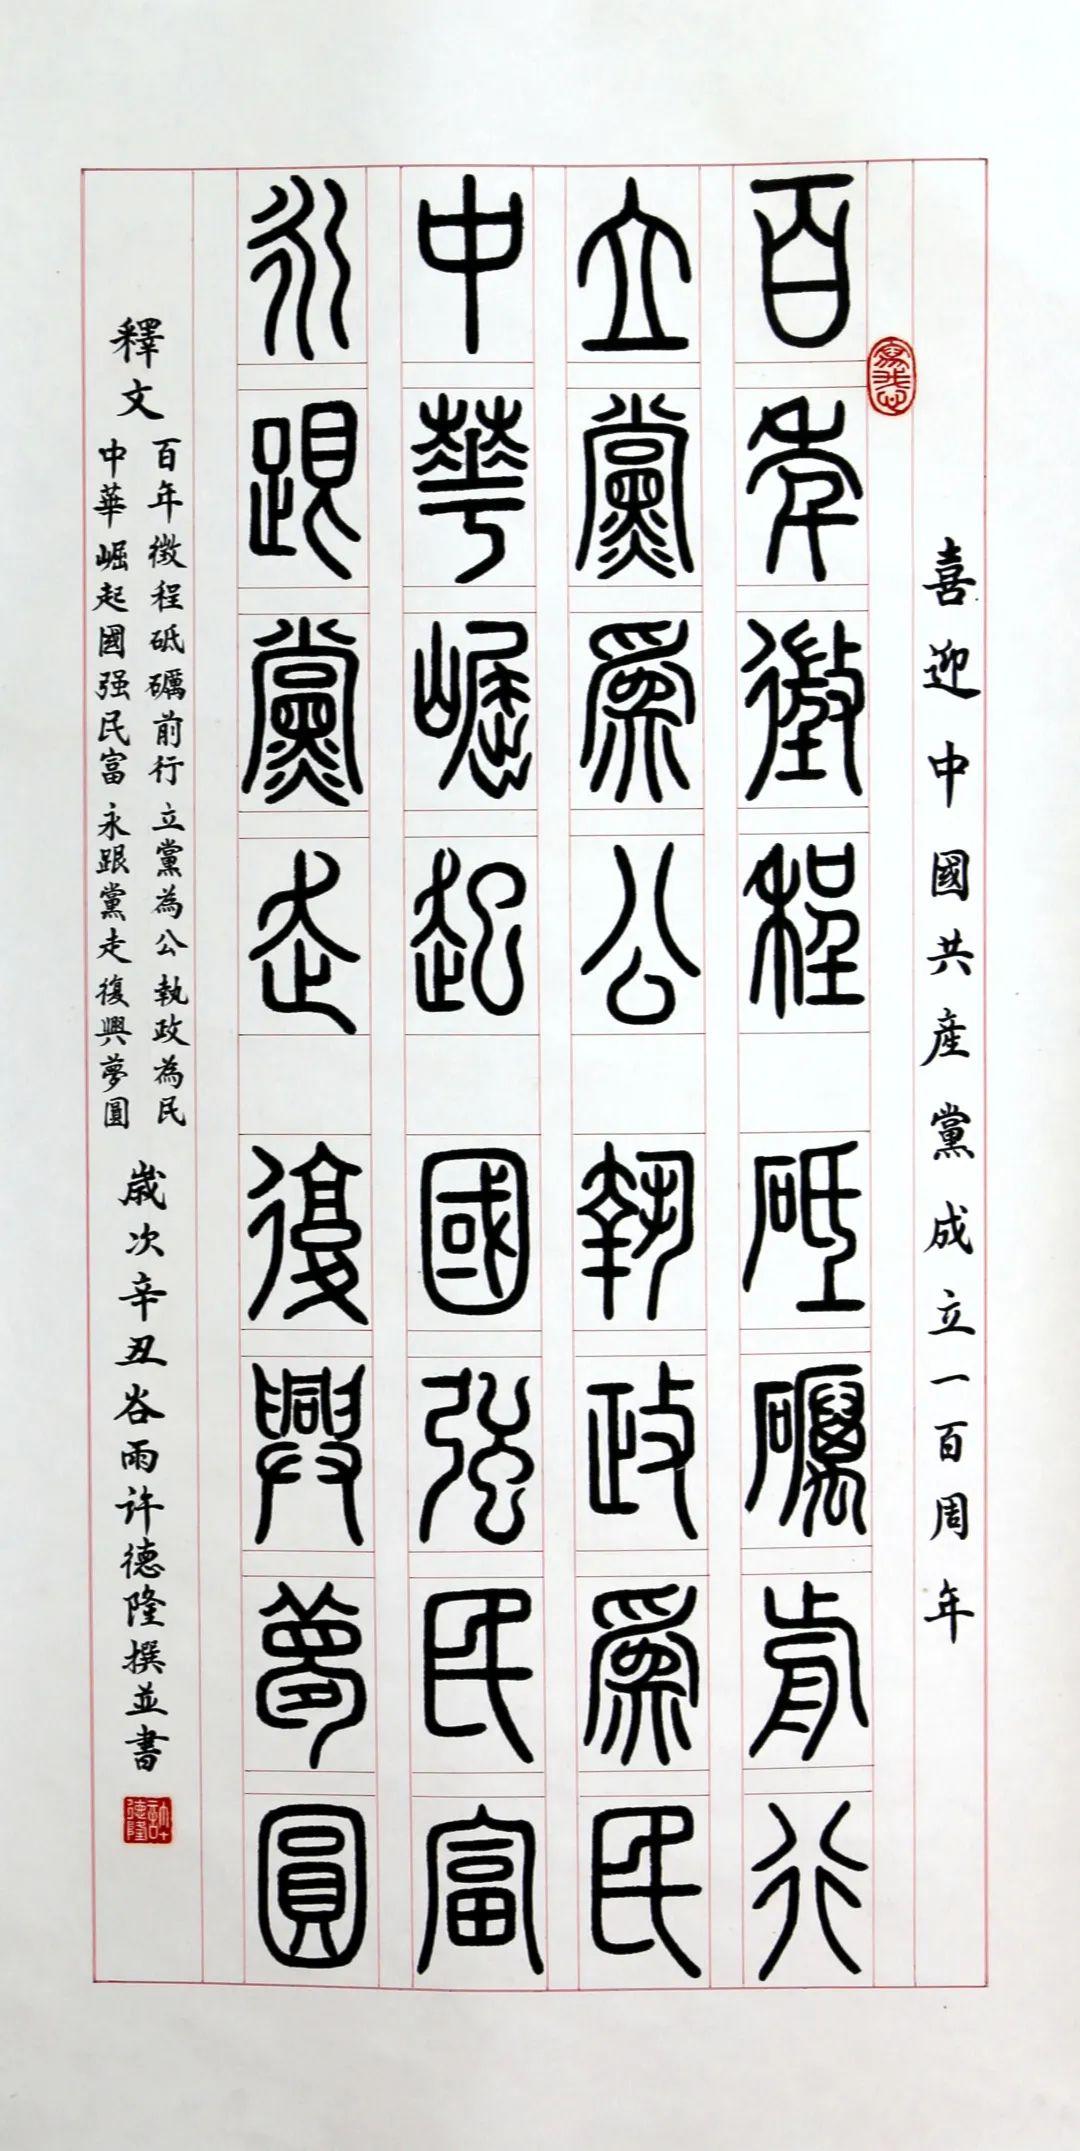 喜迎中國共産黨成立一百周年
百年徵程砥礪前行
立黨爲公執政爲民
中華崛起國强民富
永跟黨走復興夢圓
釋文
百年徵程砥礪前行立黨為公執政為民
中華崛起國强民富永跟黨走復興夢圓
歲次辛丑谷雨许德隆撰並書
許德隆